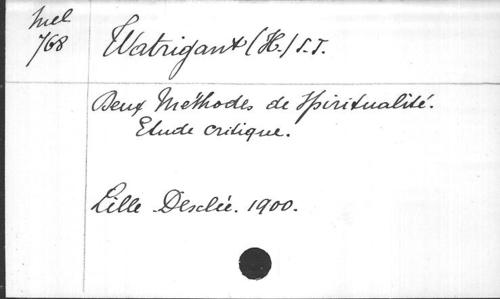 Mel
768
Watrigant (H.) S.J.
Deux Méthodes de Spiritualité.
Etude critique.
Lille Desclée. 1900.